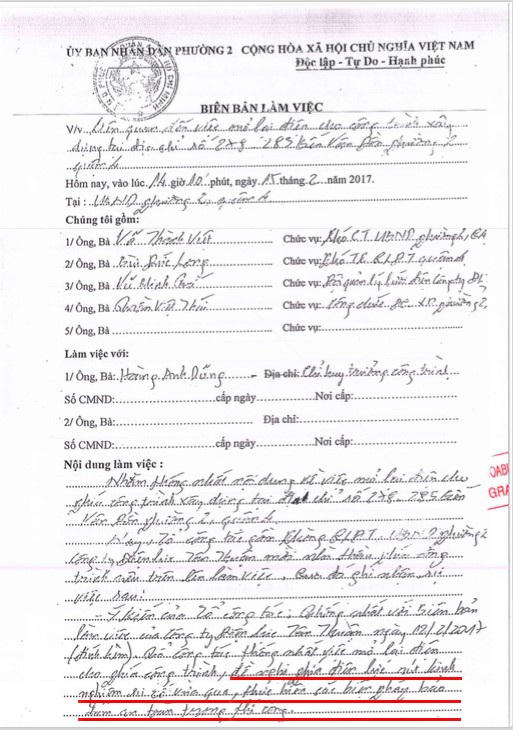 ỦY BAN NHÂN DÂN PHƯỜNG 2 CỘNG HÒA XÃ HỘI CHỦ NGHĨA VIỆT NAM
Độc lập - Tự Do - Hạnh phúc
BIÊN BẢN LÀM VIỆC
V/v Liên quan đến việc mở lại điện cho công trình xây
dựng tại địa chỉ số 278 285 Bến Vân Đồn phường 2
quận 4
Hôm nay, vào lúc 14 giờ 10 phút, ngày 15 tháng 2 năm 2017.
Tại : UBND phường 2, quận 4
Chúng tôi gồm:
1/ Ông, Bà Võ Thành Việt Chức vụ: Phó CT UBND phường
2/ Ông, Bà Long Chức vụ: Phó
3/ Ông, Bà Vũ Minh Chức vụ: Đội quản lý lưới điện công ty ĐL
4/ Ông, Bà Chức vụ: phường 2
5/ Ông, Bà Chức vụ:
Làm việc với:
1/ Ông, Bà: Hoàng Anh Dũng - Địa chỉ: Chỉ huy trưởng công trình
Số CMND: cấp ngày Nơi cấp:
2/ Ông, Bà: Địa chỉ:
Số CMND: cấp ngày Nơi cấp:
Nội dung làm việc :
Nhằm thống nhất nội dung về việc mở lại điện cho
phía công trình xây dựng tại địa chỉ số 278 285 Bến
Vân Đồn phường 2, quận 4.
Tổ công tác gồm Phòng QLĐT, UBND phường 2
công ty Điện lực Tân Thuận mời nhà thầu phía công
trình nêu trên lên làm việc, qua đó ghi nhận sự
việc sau:
- Ý kiến của Tổ công tác: thống nhất với biên bản
làm việc của công ty Điện lực Tân Thuận ngày 10/2/2017
(đính kèm). Tổ công tác thống nhất việc mở lại điện
cho phía công trình, đề nghị phía điện lực rút kinh
nghiệm sự cố vừa qua, thực hiện các biện pháp bảo
đảm an toàn trong thi công.